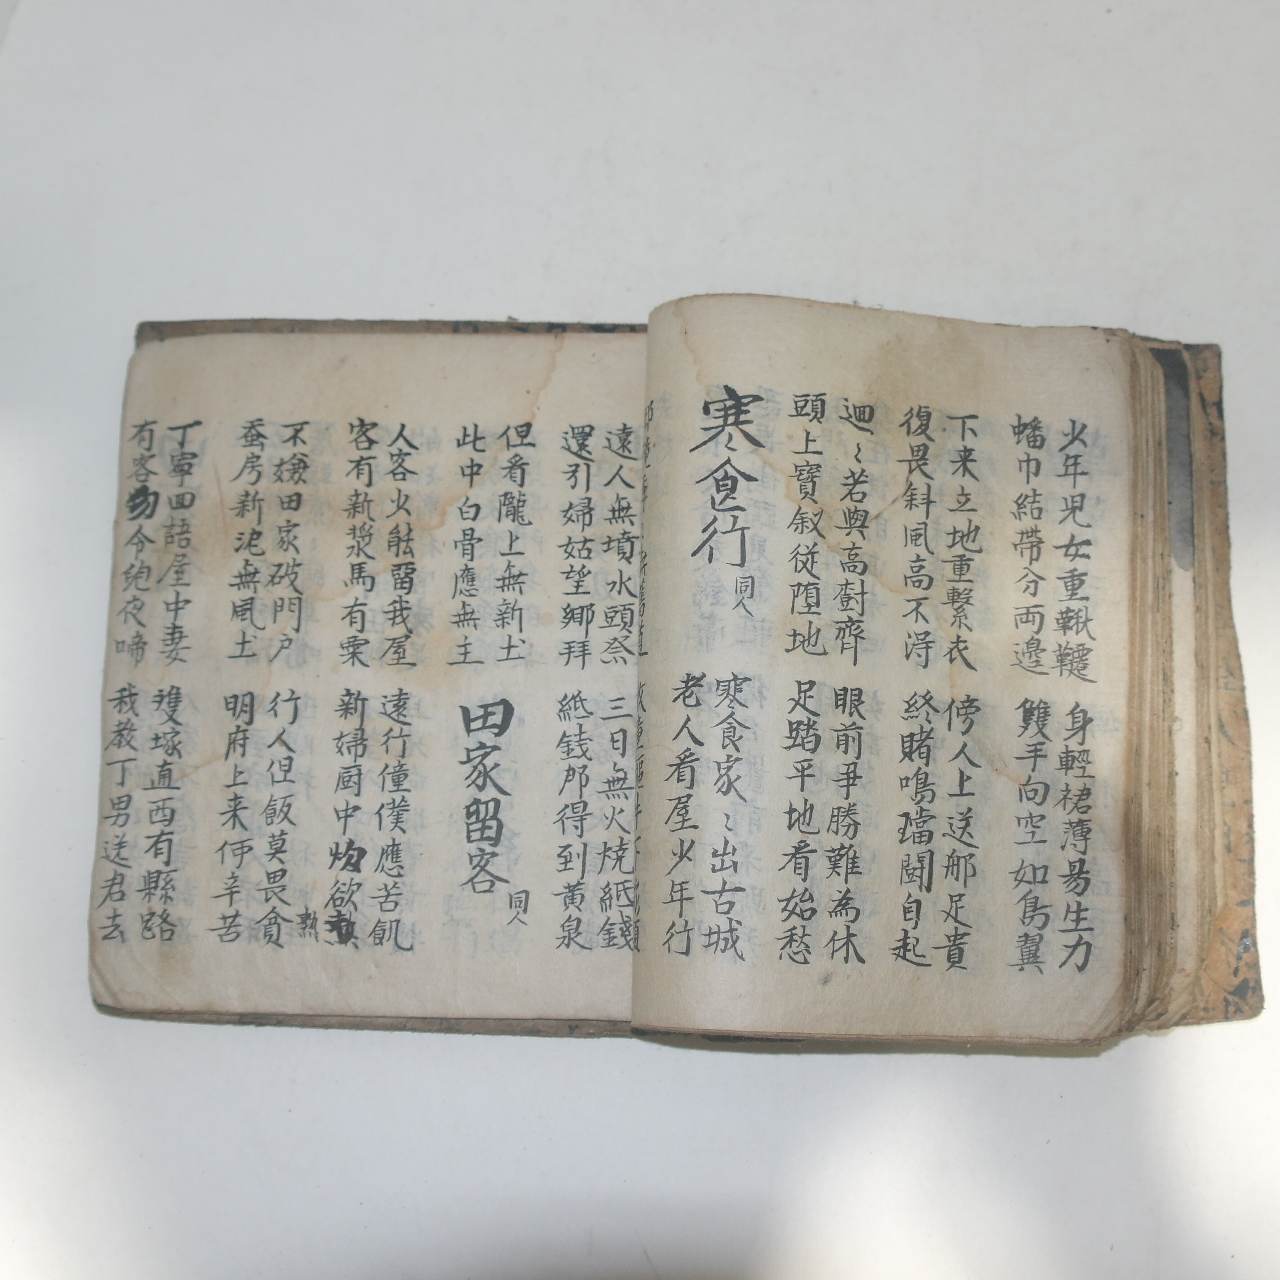 少年児女重鞦韆 身輕裙薄易生力
蟠巾結帶分両邊 雙手向空如鳥翼
下来立地重繫衣 傍人上送那足貴
復畏斜風高不淂 終賭鳴璫闘自起
迴〻若與高樹齊 眼前爭勝難為休
頭上寳釵従堕地 足踏平地看始愁
寒食行 同人
寒食家〻出古城
老人看屋少年行
遠人無墳水頭祭 三日無火焼紙錢
還引婦姑望郷拜 紙錢那得到黄泉
但看隴上無新土
此中白骨應無主
田家留客 同人
人客少能留我屋 遠行僮僕應苦飢
客有新漿馬有粟 新婦厨中炊欲熟 熟
不嫌田家破門戸 行人但飯莫畏貪
蚕房新泥無風土 明府上来伊辛苦
丁寧回語屋中妻 雙塚直西有縣路
有客勿令兒夜啼 我教丁男送君去